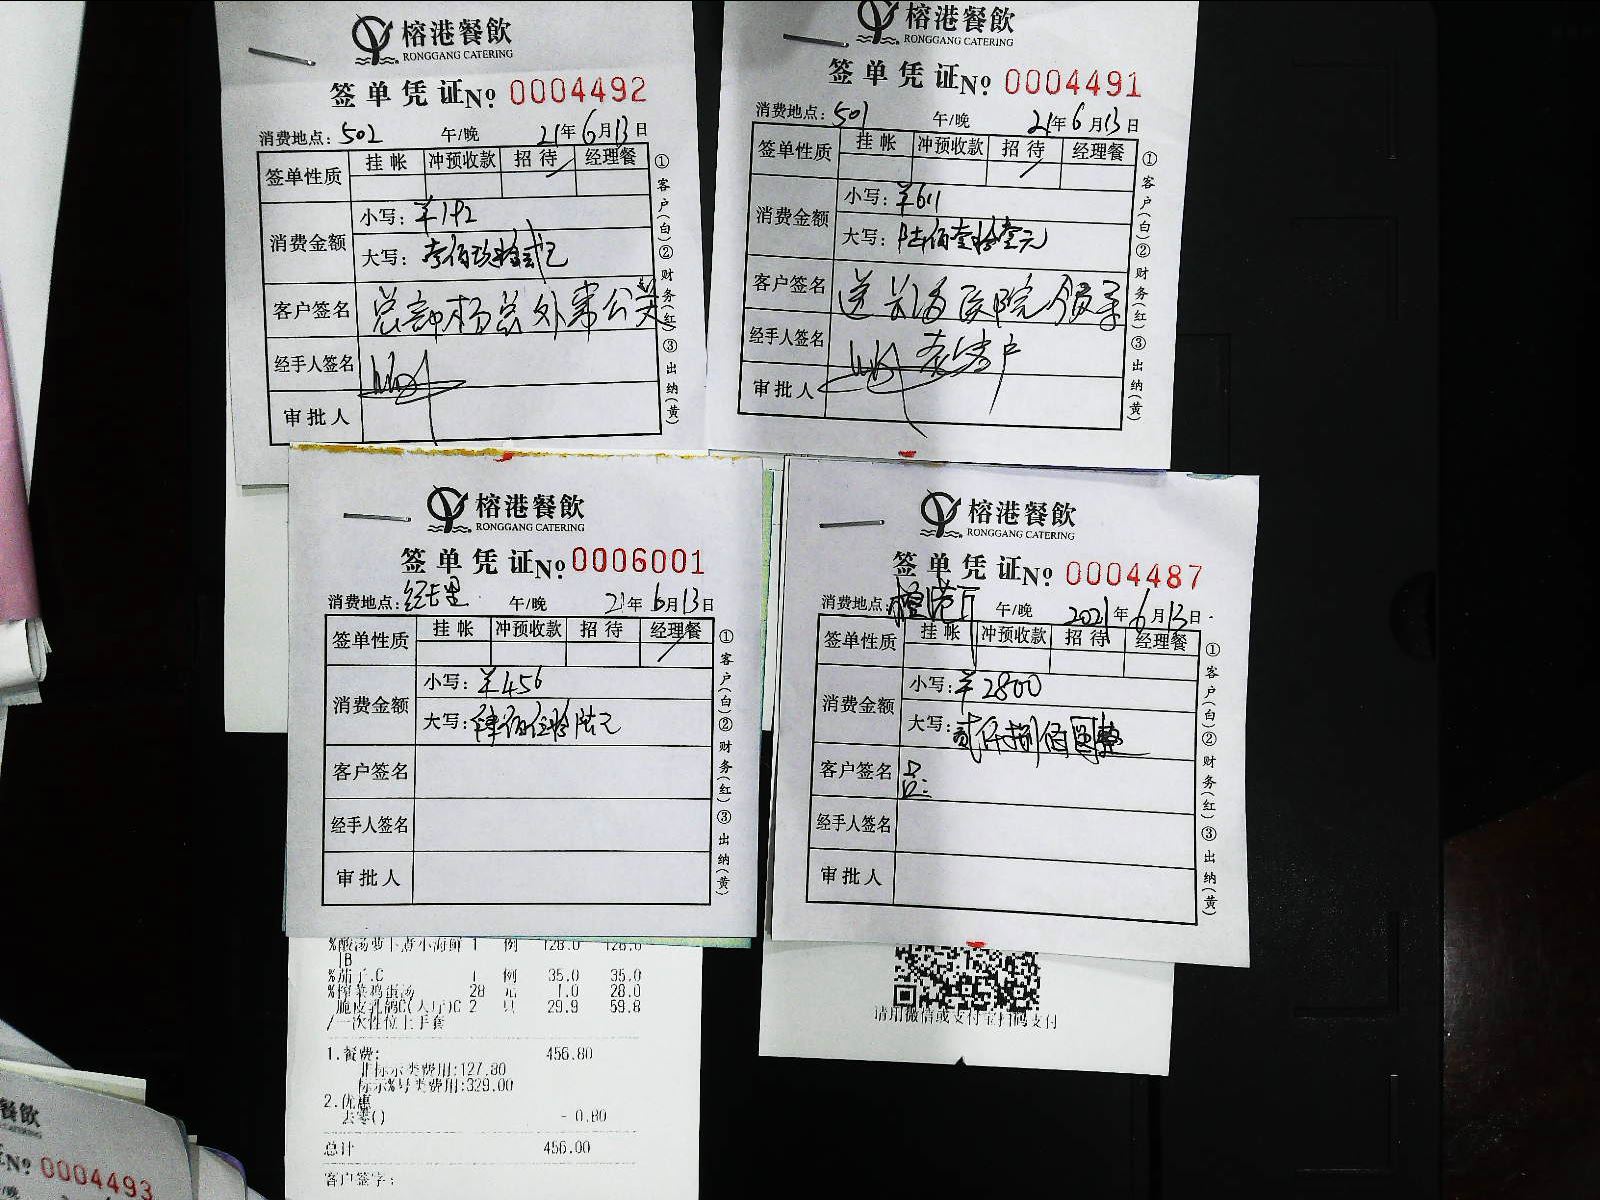 榕港餐飲
RONGGANG CATERING
签单凭证№ 0004492
消费地点：502 午/晚 21年6月13日
签单性质 挂帐 冲预收款 招待 经理餐
消费金额 小写：¥192
大写：壹佰玖拾贰元
客户签名 总部杨总外事公关
经手人签名
审批人
①客户（白）②财务（红）③出纳（黄）
榕港餐飲
RONGGANG CATERING
签单凭证№ 0004491
消费地点：501 午/晚 21年6月13日
签单性质 挂帐 冲预收款 招待 经理餐
消费金额 小写：¥611
大写：陆佰壹拾壹元
客户签名 送长海医院领导
经手人签名 客户
审批人
①客户（白）②财务（红）③出纳（黄）
榕港餐飲
RONGGANG CATERING
签单凭证№ 0006001
消费地点：经理 午/晚 21年6月13日
签单性质 挂帐 冲预收款 招待 经理餐
消费金额 小写：¥456
大写：肆佰伍拾陆元
客户签名
经手人签名
审批人
①客户（白）②财务（红）③出纳（黄）
榕港餐飲
RONGGANG CATERING
签单凭证№ 0004487
消费地点：榕港厅 午/晚 2021年6月13日
签单性质 挂帐 冲预收款 招待 经理餐
消费金额 小写：¥2800
大写：贰仟捌佰圆整
客户签名
经手人签名
审批人
①客户（白）②财务（红）③出纳（黄）
%酸汤萝卜煮小海鲜 1 例 128.0 128.0
%茄子.C 1 例 35.0 35.0
%榨菜鸡蛋汤 28 元 1.0 28.0
脆皮乳鸽C(大厅)C 2 只 29.9 59.8
/一次性位上手套
1.餐费: 456.80
非标示类费用:127.80
标示%号类费用:329.00
2.优惠
去零() - 0.80
总计 456.00
客户签字:
请用微信或支付宝扫码支付
餐飲
№ 0004493